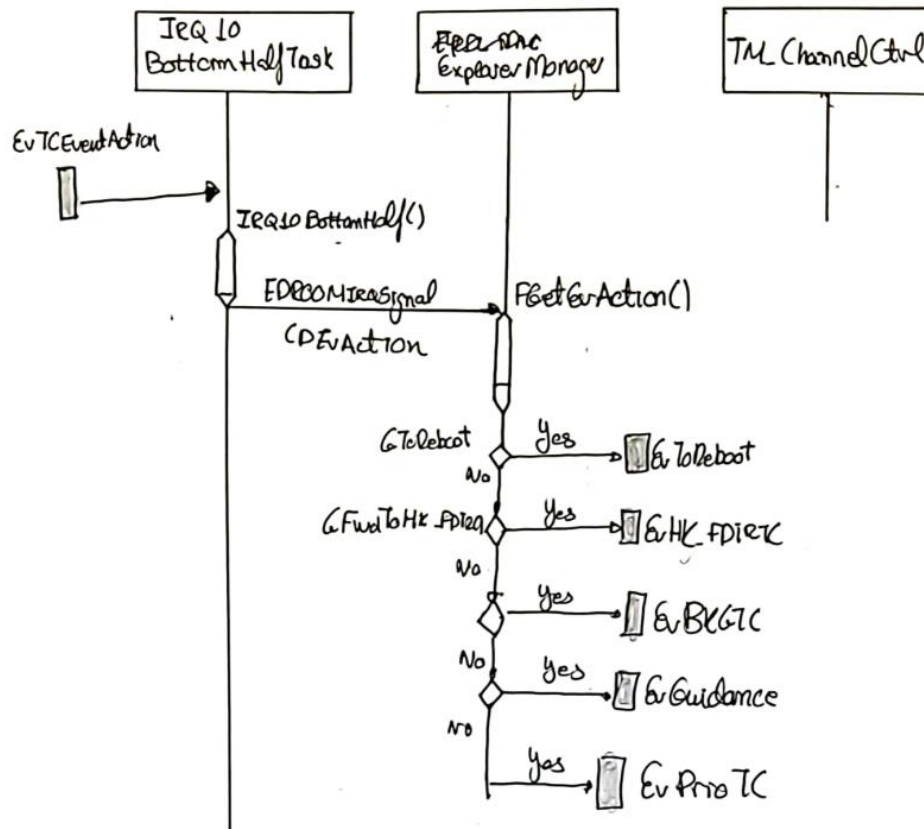 IRQ 10
BottomHalfTask
Explorer Manager
TM_ChannelCtrl
EvTCEventAction
IRQ10 BottomHalf()
EDROOMIRQSignal
CDEvAction
FGetEvAction()
GTcReboot
Yes
EvToReboot
No
GFwdToHK_FDIR
Yes
EvHK_FDIRTC
No
Yes
EvBKGTC
No
Yes
EvGuidance
No
Yes
EvPrioTC